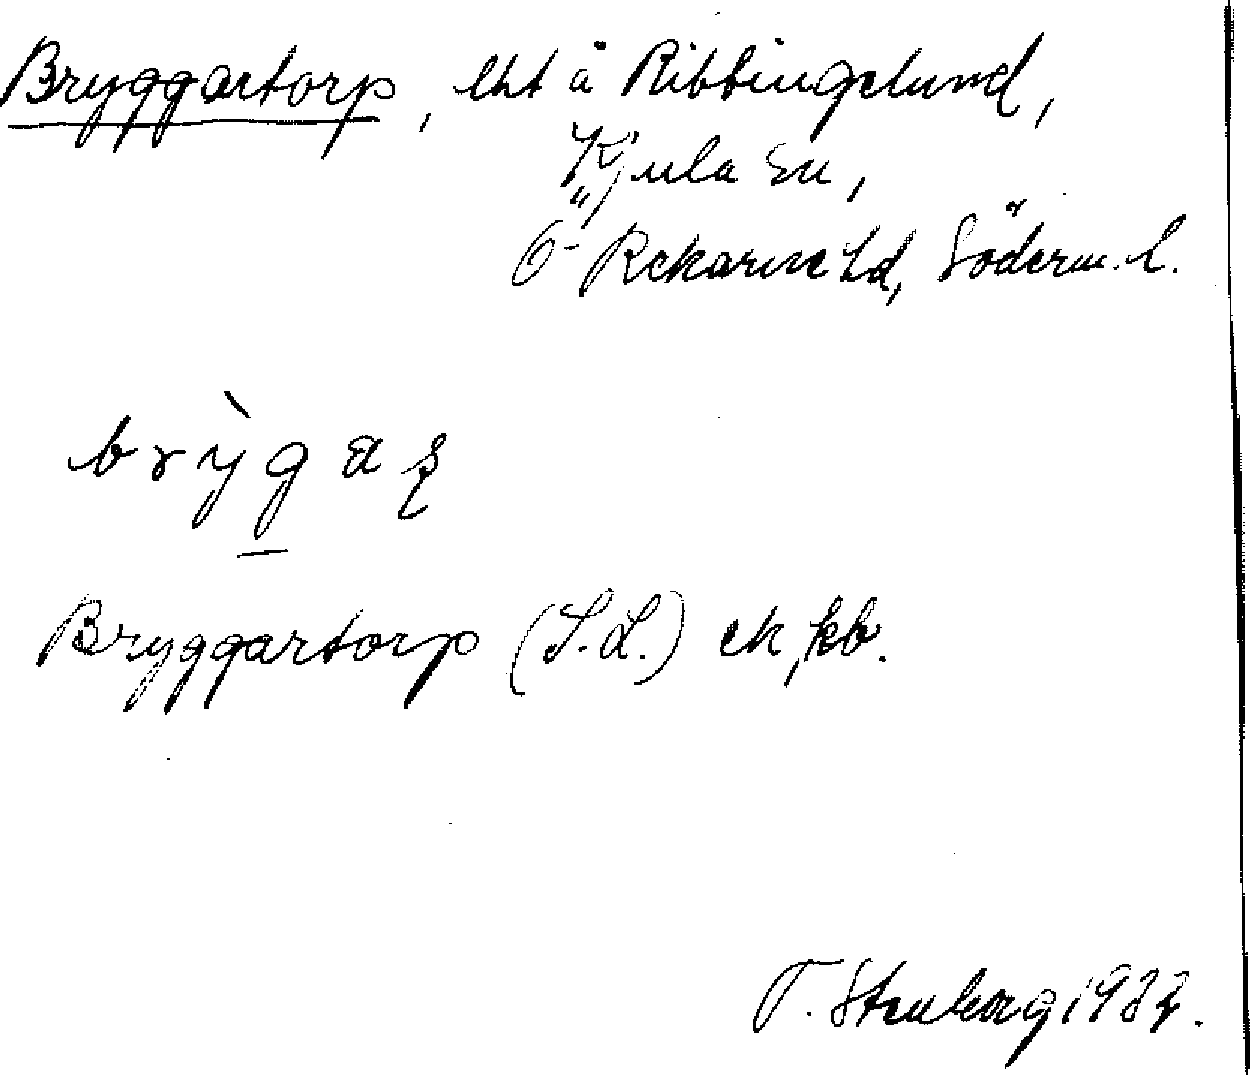 Bryggartorp, lht å Ribbingelund,
Kjula sn,
Ö- Rekarne hd, Söderm. l.
brỳgaʂ
Bryggartorp (S.L.) ek, kb.
T. Stenberg